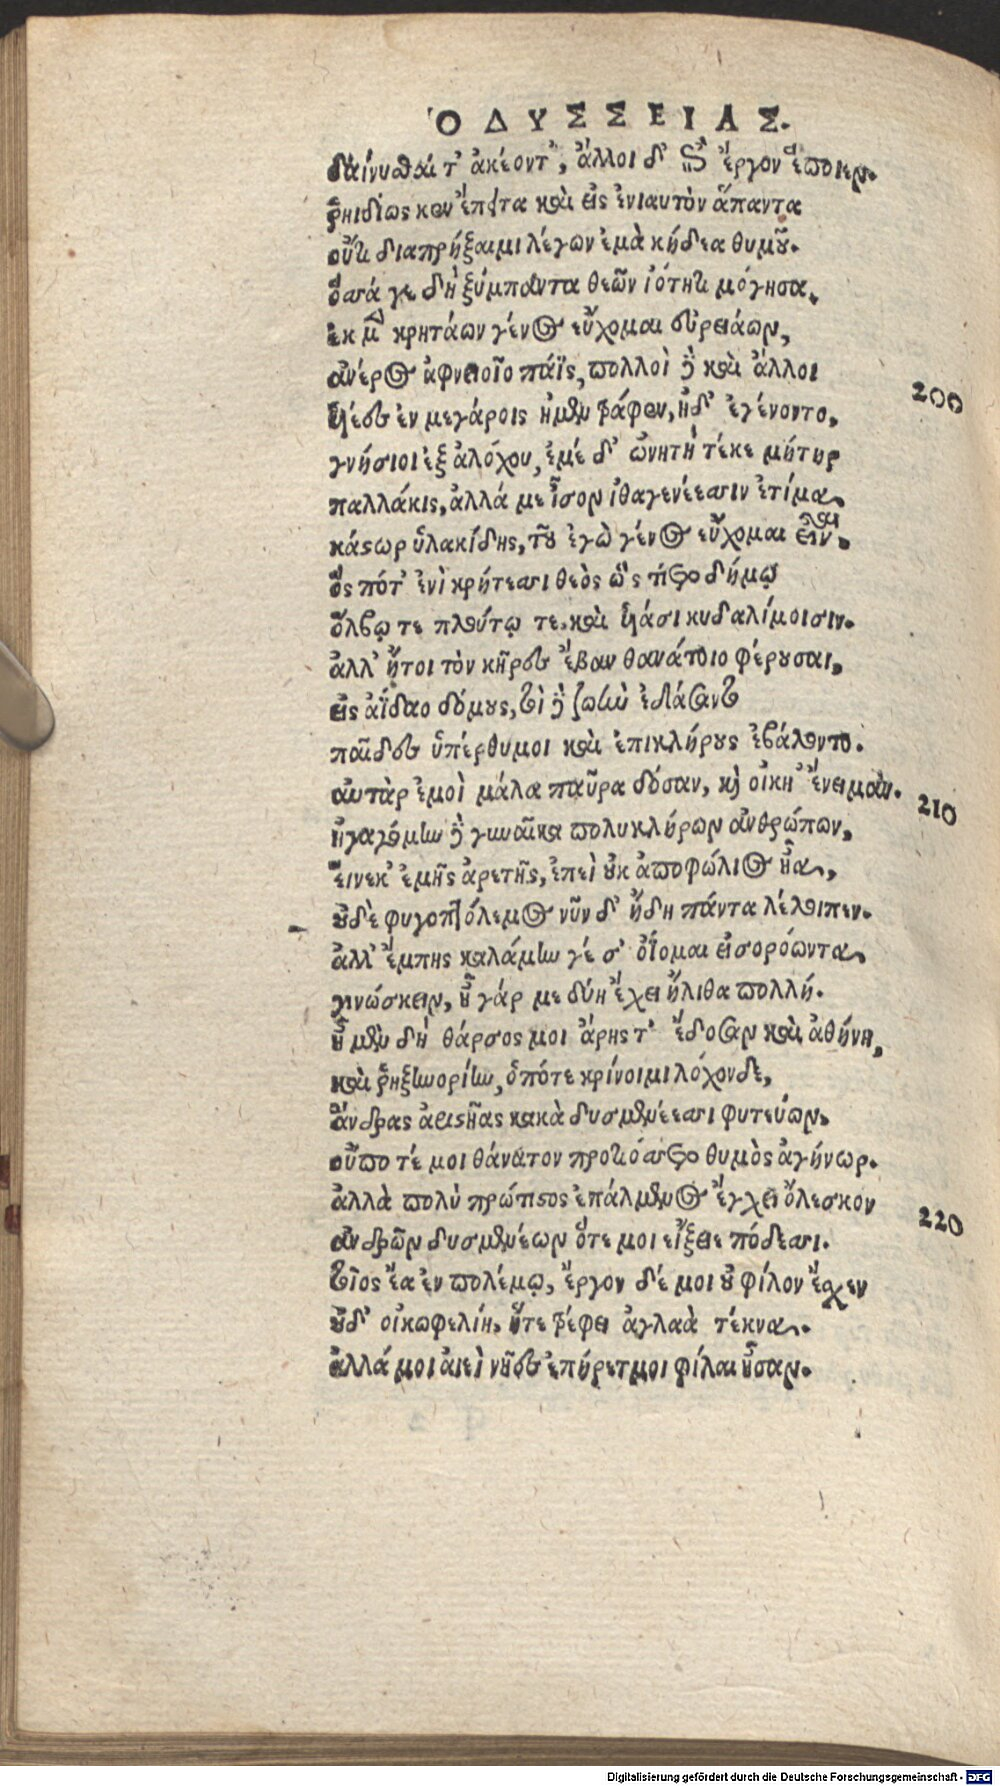 ὈΔΥΣΣΕΙΑΣ.
δαίνυσθαί τ' ἀκέοντ', ἄλλοι δ' ἐπὶ ἔργον ἕποιεν.
ῥηιδίως κεν ἔπειτα καὶ εἰς ἐνιαυτὸν ἅπαντα
οὔτι διαπρήξαιμι λέγων ἐμὰ κήδεα θυμοῦ.
ὅσσά γε δὴ ξύμπαντα θεῶν ἰότητι μόγησα,
ἐκ μὲν κρητάων γένος εὔχομαι εὐρειάων,
ἀνέρος ἀφνειοῖο πάϊς, πολλοὶ δὲ καὶ ἄλλοι
200
ὑιέες ἐν μεγάροις ἠμὲν τράφεν, ἠδ' ἐγένοντο,
γνήσιοι ἐξ ἀλόχου, ἐμέ δ' ὠνητὴ τέκε μήτηρ
παλλάκις, ἀλλά με ἶσον ἰθαγενέεσσιν ἐτίμα,
κάστωρ ὑλακίδης, τοῦ ἐγὼ γένος εὔχομαι εἶναι.
ὅς πότ' ἐνὶ κρήτεσσι θεὸς ὣς τίετο δήμῳ
ὄλβῳ τε πλούτῳ τε καὶ ὑιάσι κυδαλίμοισιν.
ἀλλ' ἤτοι τὸν κῆρες ἔβαν θανάτοιο φέρουσαι,
εἰς ἀΐδαο δόμους, τοὶ δὲ ζωὴν ἐδάσαντο
παῖδες ὑπέρθυμοι καὶ ἐπικλήρους ἐβάλοντο.
αὐτὰρ ἐμοὶ μάλα παῦρα δόσαν, καὶ οἰκί' ἔνειμαν.
210
ἠγαγόμην δὲ γυναῖκα πολυκλήρων ἀνθρώπων,
εἵνεκ' ἐμῆς ἀρετῆς, ἐπεὶ οὐκ ἀποφώλιος ἦα,
οὐδὲ φυγοπτόλεμος νῦν δ' ἤδη πάντα λέλοιπεν.
ἀλλ' ἔμπης καλάμην γέ σ' ὀΐομαι εἰσορόωντα,
γινώσκειν, ἦ γάρ με δύη ἔχει ἤλιθα πολλή.
ἦ μὲν δὴ θάρσος μοι ἄρης τ' ἔδοσαν καὶ ἀθήνη,
καὶ ῥηξηνορίην, ὁπότε κρίνοιμι λόχονδε,
ἄνδρας ἀριστῆας κακὰ δυσμενέεσσι φυτεύων,
οὔποτέ μοι θάνατον προτιόσσετο θυμὸς ἀγήνωρ.
ἀλλὰ πολὺ πρώτιστος ἐπάλμενος ἔγχει ὄλεσκον
220
ἀνδρῶν δυσμενέων ὅτε μοι εἴξειε πόδεσσι.
τοῖος ἔα ἐν πολέμῳ, ἔργον δέ μοι οὐ φίλον ἔσκεν
οὐδ' οἰκωφελίη, ἥτε τρέφει ἀγλαὰ τέκνα.
ἀλλά μοι αἰεὶ νῆες ἐπήρετμοι φίλαι ἦσαν.
Digitalisierung gefördert durch die Deutsche Forschungsgemeinschaft - DFG